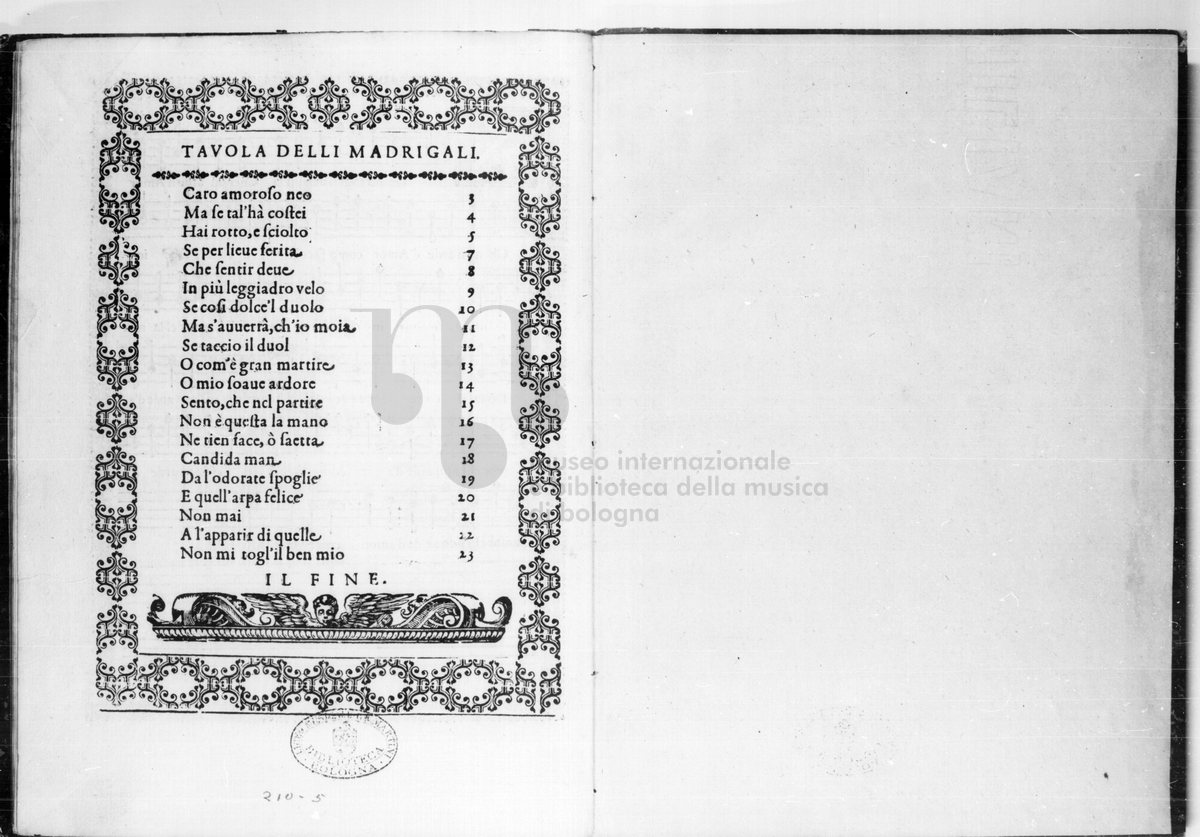 TAVOLA DELLI MADRIGALI.
Caro amoroſo neo 3
Ma ſe tal'hà coſtei 4
Hai rotto, e ſciolto 5
Se per lieue ferita 7
Che ſentir deue 8
In più leggiadro velo 9
Se coſi dolce'l duolo 10
Ma s'auuerrà, ch'io moia 11
Se taccio il duol 12
O com'è gran martire 13
O mio ſoaue ardore 14
Sento, che nel partire 15
Non è queſta la mano 16
Ne tien face, ò ſaetta 17
Candida man 18
Da l'odorate ſpoglie 19
E quell'arpa felice 20
Non mai 21
A l'apparir di quelle 22
Non mi togl'il ben mio 23
IL FINE.
museo internazionale
biblioteca della musica
di bologna
BIBLIOTECA
BOLOGNA
210-5